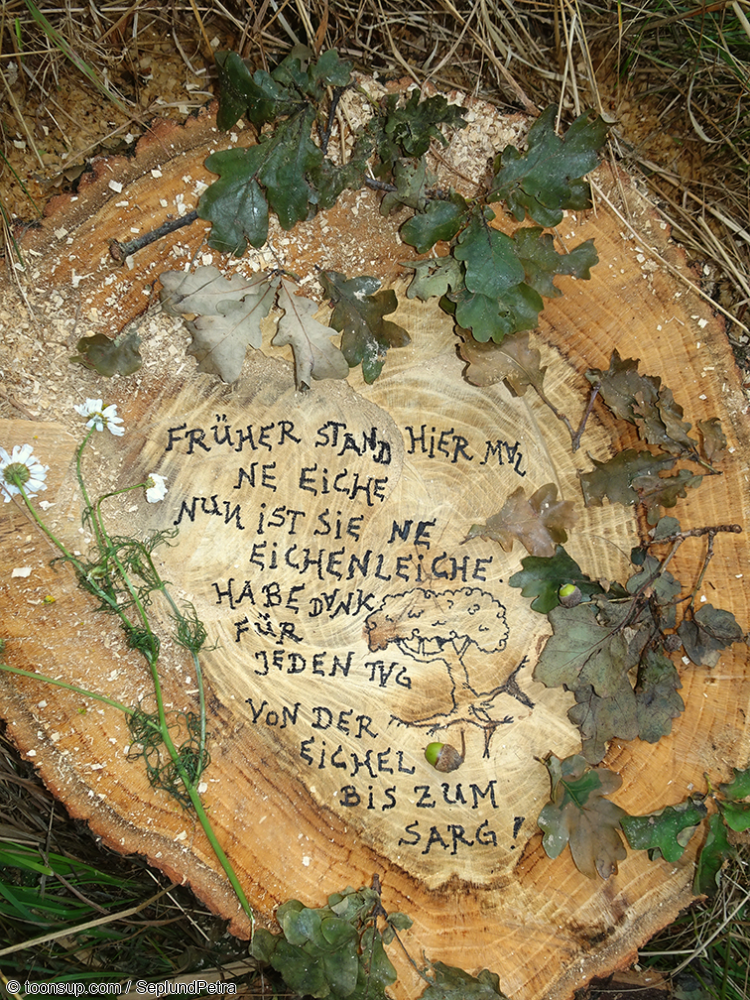 FRÜHER STAND HiER MAL
NE EiCHE
NUN iST SiE NE
EiCHENLEiCHE.
HABE DANK
FÜR
JEDEN TAG
VON DER
EiCHEL
BiS ZUM
SARG!
© toonsup.com / SeplundPetra